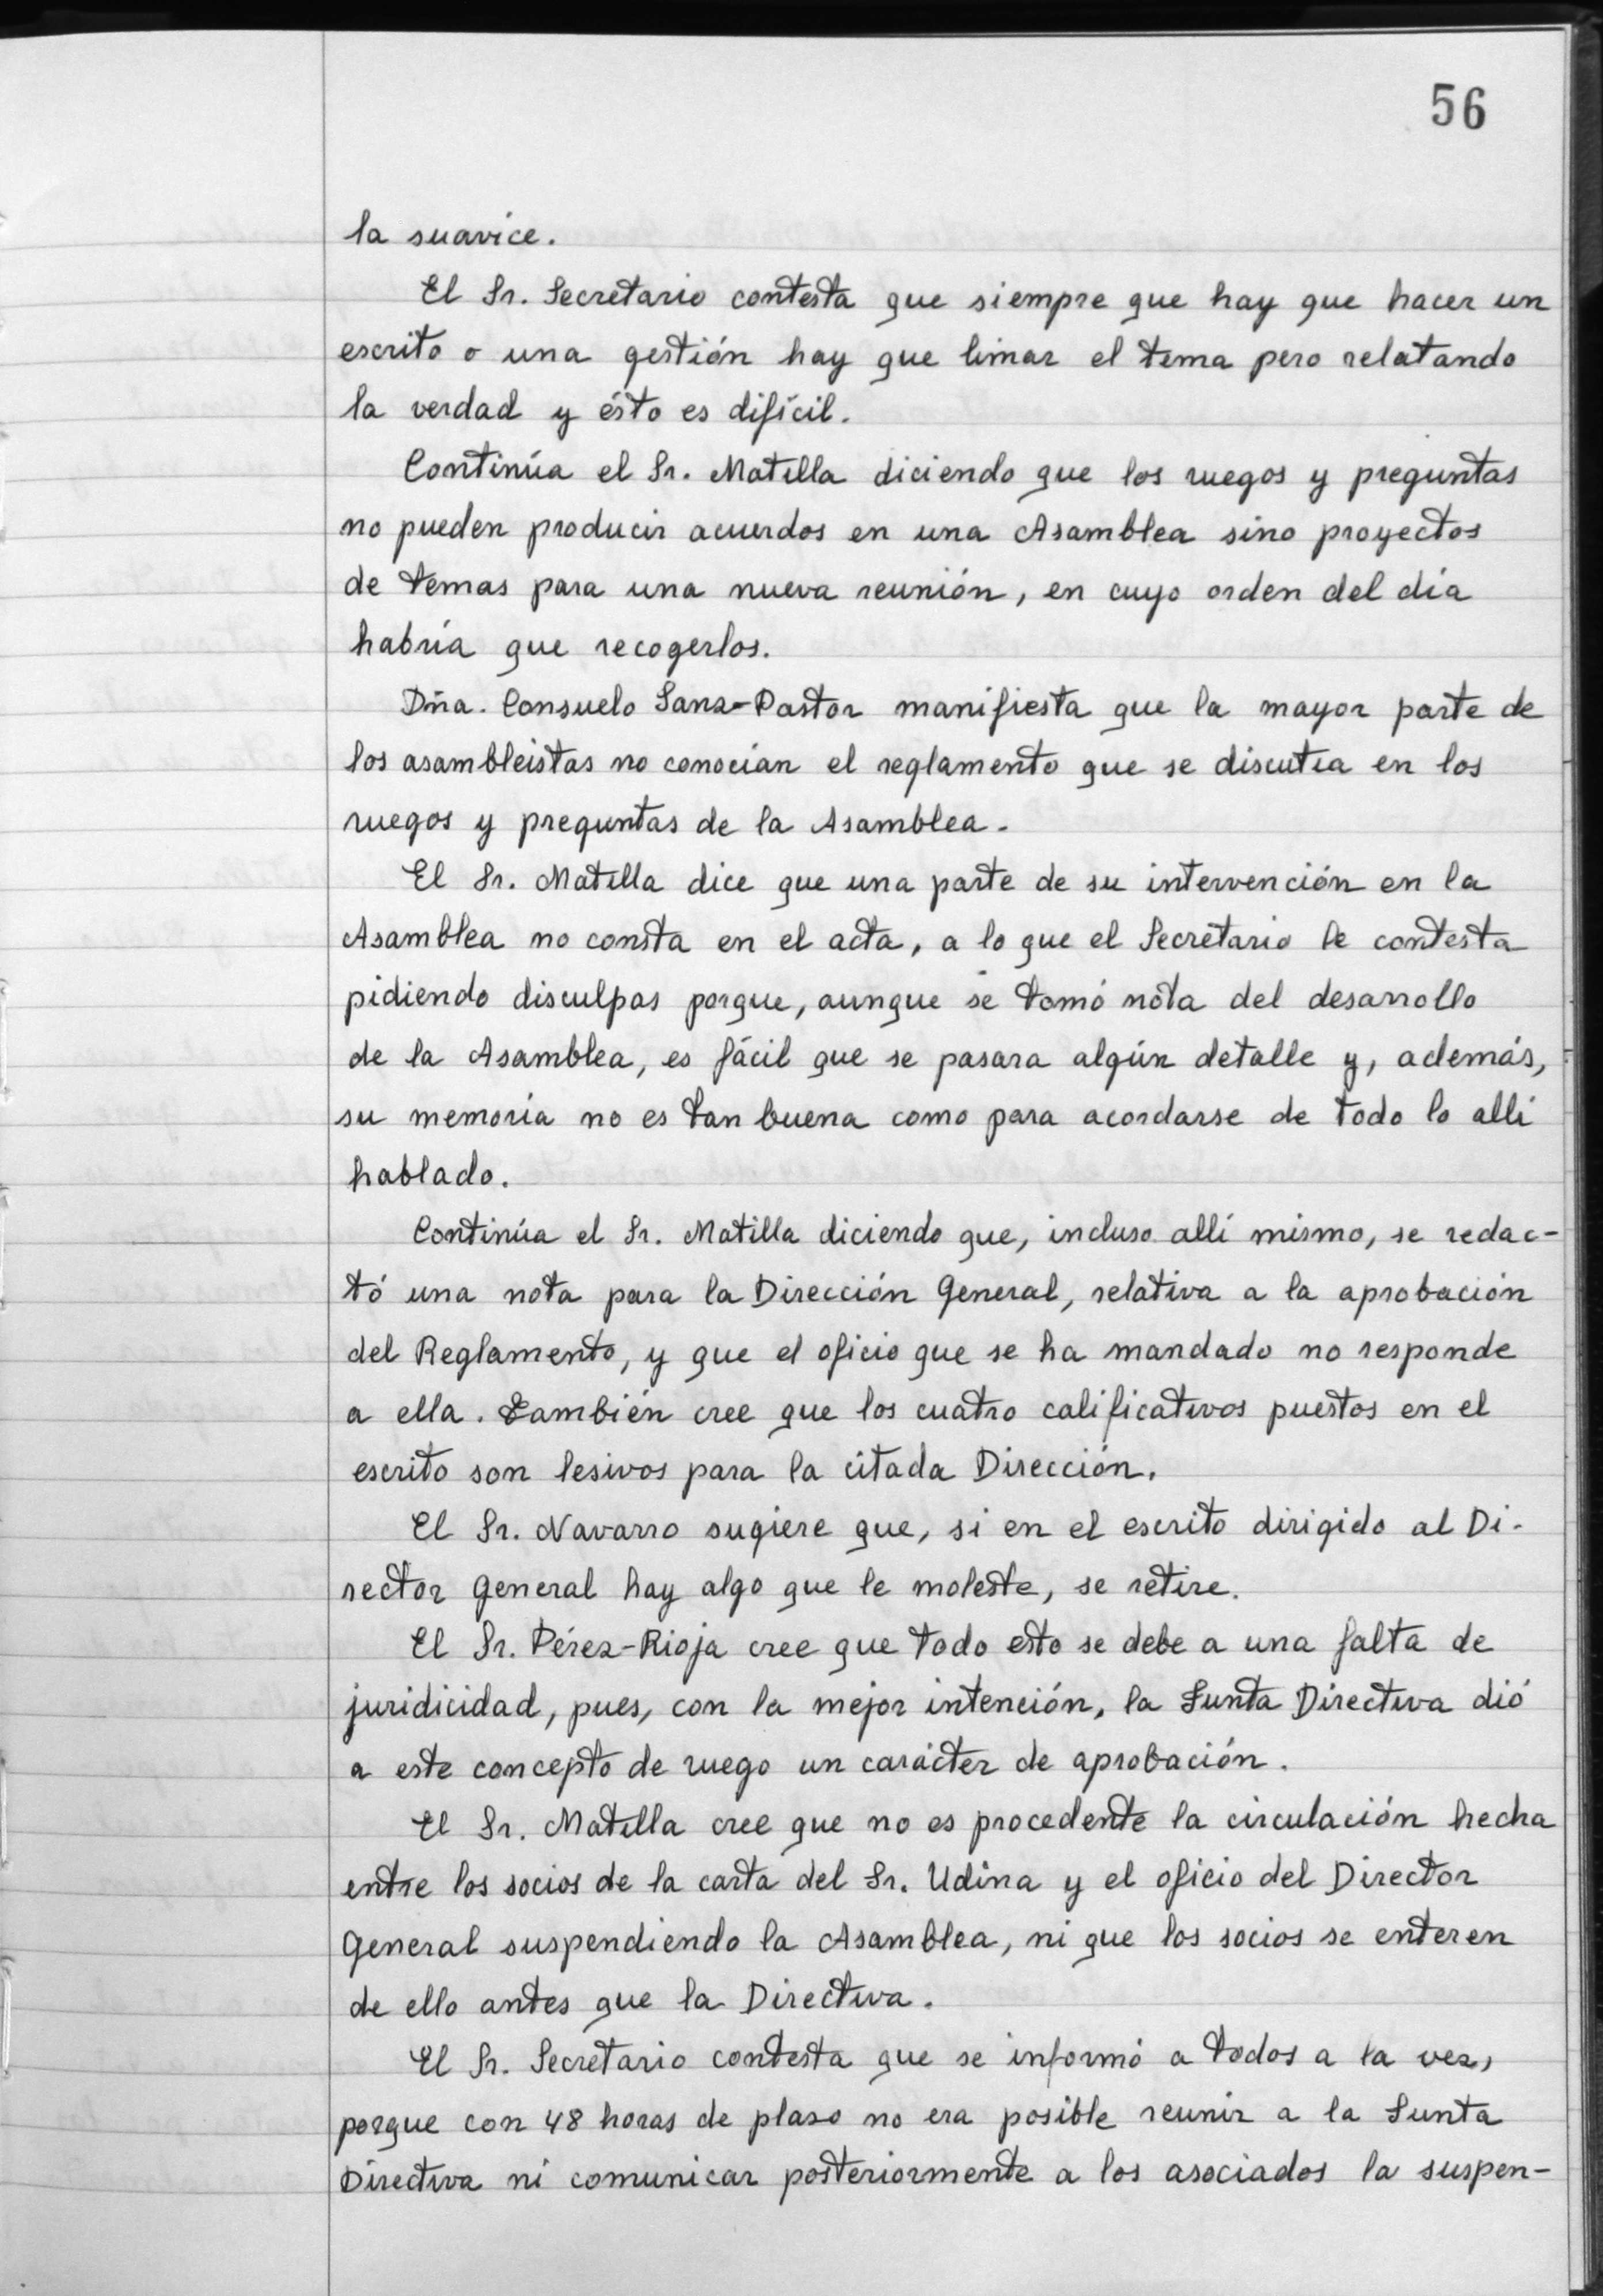 56
la suavice.
El Sr. Secretario contesta que siempre que hay que hacer un
escrito o una gestión hay que limar el tema pero relatando
la verdad y ésto es difícil.
Continúa el Sr. Matilla diciendo que los ruegos y preguntas
no pueden producir acuerdos en una Asamblea sino proyectos
de temas para una nueva reunión, en cuyo orden del día
habría que recogerlos.
Dña. Consuelo Sanz-Pastor manifiesta que la mayor parte de
los asambleistas no conocían el reglamento que se discutía en los
ruegos y preguntas de la Asamblea.
El Sr. Matilla dice que una parte de su intervención en la
Asamblea no consta en el acta, a lo que el Secretario le contesta
pidiendo disculpas porque, aunque se tomó nota del desarrollo
de la Asamblea, es fácil que se pasara algún detalle y, además,
su memoria no es tan buena como para acordarse de todo lo allí
hablado.
Continúa el Sr. Matilla diciendo que, incluso allí mismo, se redac-
tó una nota para la Dirección General, relativa a la aprobación
del Reglamento, y que el oficio que se ha mandado no responde
a ella. También cree que los cuatro calificativos puestos en el
escrito son lesivos para la citada Dirección.
El Sr. Navarro sugiere que, si en el escrito dirigido al Di-
rector General hay algo que le moleste, se retire.
El Sr. Pérez-Rioja cree que todo esto se debe a una falta de
juridicidad, pues, con la mejor intención, la Junta Directiva dió
a este concepto de ruego un carácter de aprobación.
El Sr. Matilla cree que no es procedente la circulación hecha
entre los socios de la carta del Sr. Udina y el oficio del Director
General suspendiendo la Asamblea, ni que los socios se enteren
de ello antes que la Directiva.
El Sr. Secretario contesta que se informó a todos a la vez,
porque con 48 horas de plazo no era posible reunir a la Junta
Directiva ni comunicar posteriormente a los asociados la suspen-